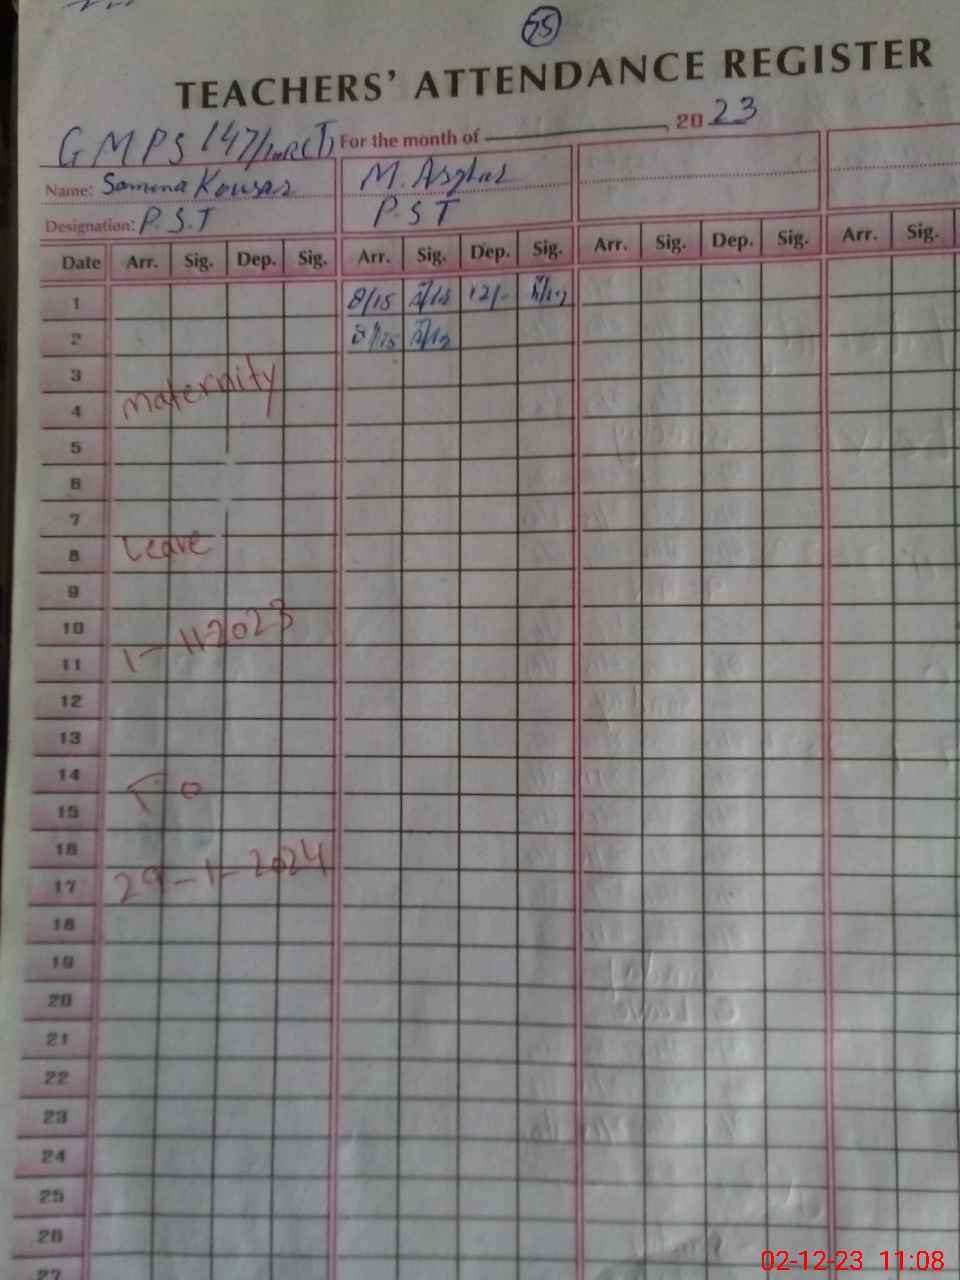 75
TEACHERS' ATTENDANCE REGISTER
GMPS 147/10R(T) For the month of , 2023
Name: Samina Kousar M. Asghar
Designation: P.S.T P.S.T
Date Arr. Sig. Dep. Sig. Arr. Sig. Dep. Sig. Arr. Sig. Dep. Sig. Arr. Sig.
1 8/15 12/-
2 8/15
3
4 Maternity
5
6
7
8 Leave
9
10
11 1-11-2023
12
13
14
15 To
16
17 29-1-2024
18
19
20
21
22
23
24
25
26
27
02-12-23 11:08